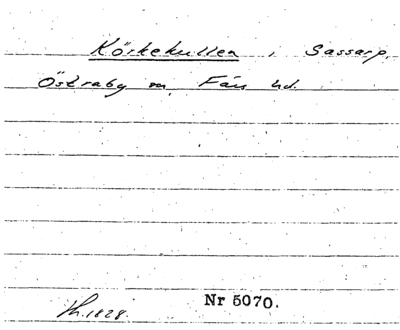 Körkekullen i Sassarp,
Östraby sn, Färs hd.
Th. 1828. Nr 5070.